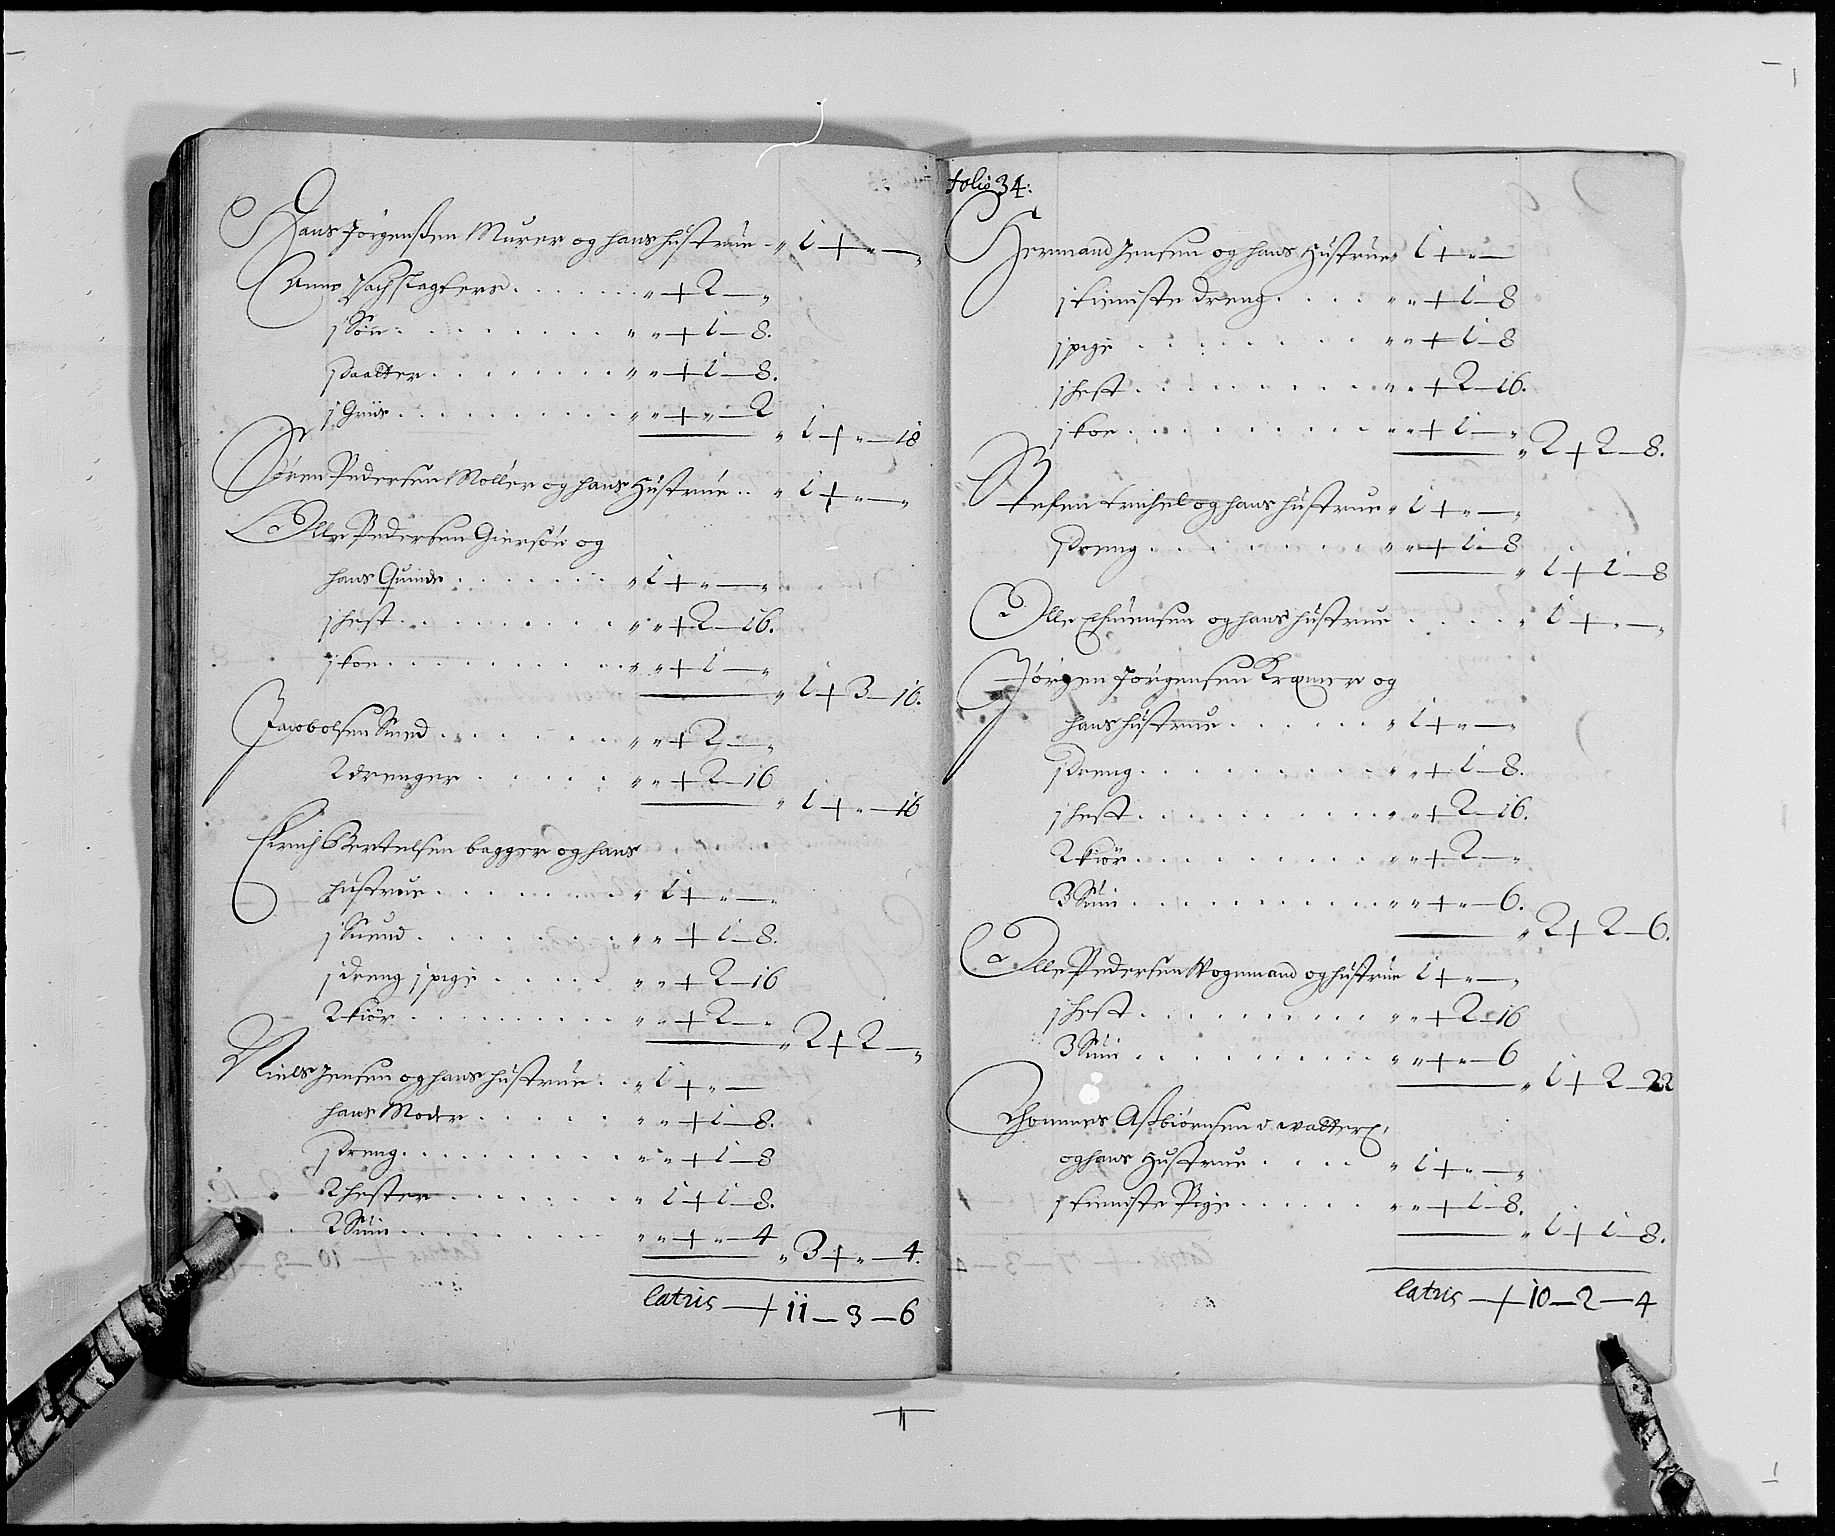 Hans Jörgensen Murer og hans hustrue „ 1 + „ — „
Anne Isach slagters . . . . „ + 2 — „
1 Sön . . . . „ „ + 1 — 8.
1 Daatter . . . . „ „ + 1 — 8.
1 Griis . . . . „ „ + „ — 2
„ 1 + „ — 18
Sören Pedersen Möller og hans Hustrue . . „ 1 + „ — „
Olle Pedersen og
hans Quinde . . . . „ 1 + „ — „
1 hest . . . . „ „ + 2 — 16.
1 koe . . . . „ „ + 1 — „
„ 1 + 3 — 16.
Jacob olsen Smed . . . . „ „ + 2 — „
2 drenger . . . . „ „ + 2 — 16
„ 1 + „ — 16
Erich Bertelsen bagger og hans
hustrue . . . . „ 1 + „ — „
1 Suend . . . . „ „ + 1 — 8.
1 dreng 1 pige . . . . „ „ + 2 — 16
2 kiör . . . . „ „ + 2 — „
„ 2 + 2 — „
Niels Jensen og hans hustrue . . „ 1 + „ —
hans Moder . . . . „ „ + 1 — 8.
1 Dreng . . . . „ „ + 1 — 8
2 hester . . . . „ 1 + 1 — 8.
2 Suin . . . . „ „ + „ — 4
„ 3 + „ — 4.
latris — + 11 — 3 — 6
folio 34:
Hermand Jensen og hans Hustrue „ 1 + „ —
1 tieniste dreng . . . . „ „ + 1 — 8
1 pige . . . . „ „ + 1 — 8
1 hest . . . . „ „ + 2 — 16.
1 koe . . . . „ „ + 1 — „
„ 2 + 2 — 8.
Stefen og hans hustrue „ 1 + „ — „
1 Dreng . . . . „ „ + 1 — 8
„ 1 + 1 — 8
Olle og hans hustrue . . . . „ 1 + „ — „
Jörgen Jörgensen Kræmer og
hans hustrue . . . . „ 1 + „ — „
1 Dreng . . . . „ „ + 1 — 8.
1 hest . . . . „ „ + 2 — 16.
2 kiör . . . . „ „ + 2 — „
3 Suin . . . . „ „ + „ — 6.
„ 2 + 2 — 6.
Olle Pedersen Wognmand og hustrue 1 + „ — „
1 hest . . . . „ „ + 2 — 16
3 Suin . . . . „ „ + „ — 6
„ 1 + 2 — 22
Thommes Assbiörnsen
og hans Hustrue . . . . „ 1 + „ — „
1 tieniste Pige . . . . „ „ + 1 — 8.
„ 1 + 1 — 8.
latris — + 10 — 2 — 4